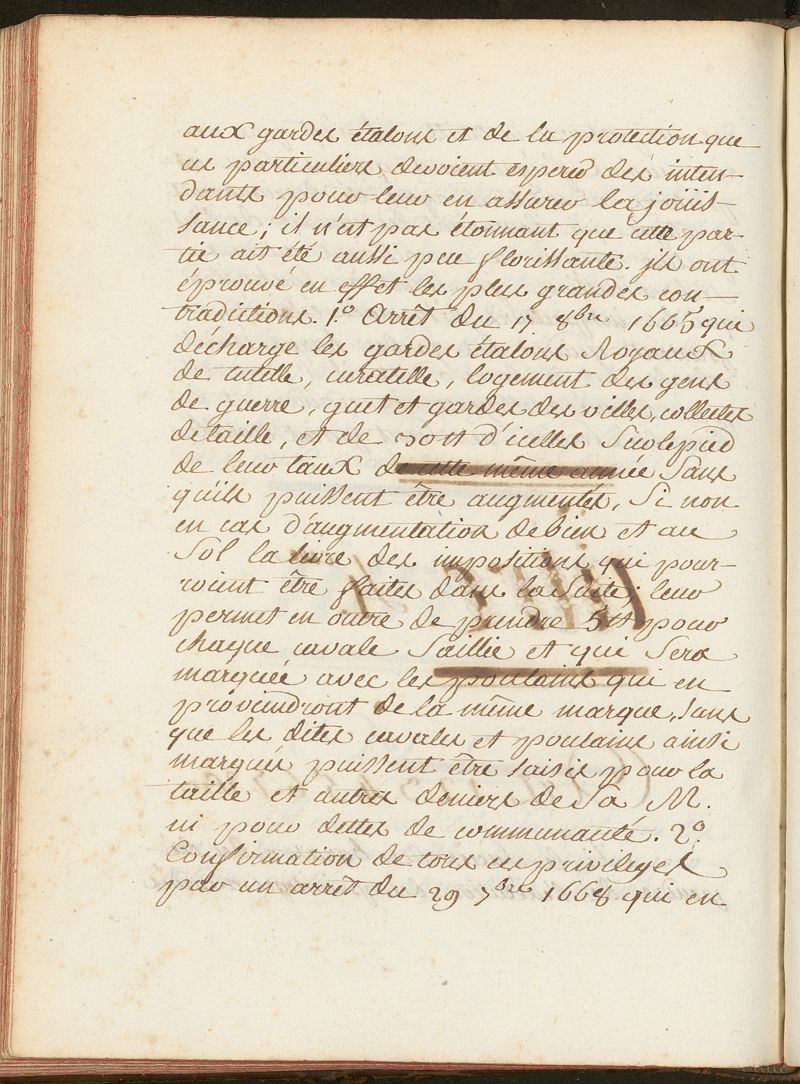 aux gardes étalons et de la protection que
ces particuliers devoient esperer des inten-
dants pour leur en assurer la joüis-
sance; il n'est pas étonnant que cette par-
tie ait été aussi peu florissante. jls ont
éprouvé en effet les plus grandes con-
tradictions. 1.º Arrêt du 17 8bre 1665 qui
décharge les gardes étalons Royaux
de tutelle, curatelle, logement des gens
de guerre, guet et gardes des villes, collectes
de taille, et de cott d'icelles Sur le pied
de leur taux de cette même année Sans
qu'ils puissent être augmentés, Si non
en cas d'augmentation de bien et au
Sol la livre des impositions qui pour-
roient être faites dans la Suite; leur
permet en outre de prendre 5tt pour
chaque cavale Saillie et qui Sera
marquée avec les poulains qui en
proviendront de la même marque, Sans
que les dites cavales et poulains ainsi
marqués puissent être saisis pour la
taille et autres deniers de Sa M.
ni pour dettes de communauté. 2º
Confirmation de tous ces privileges
par un arrêt du 29 7bre 1668 qui en